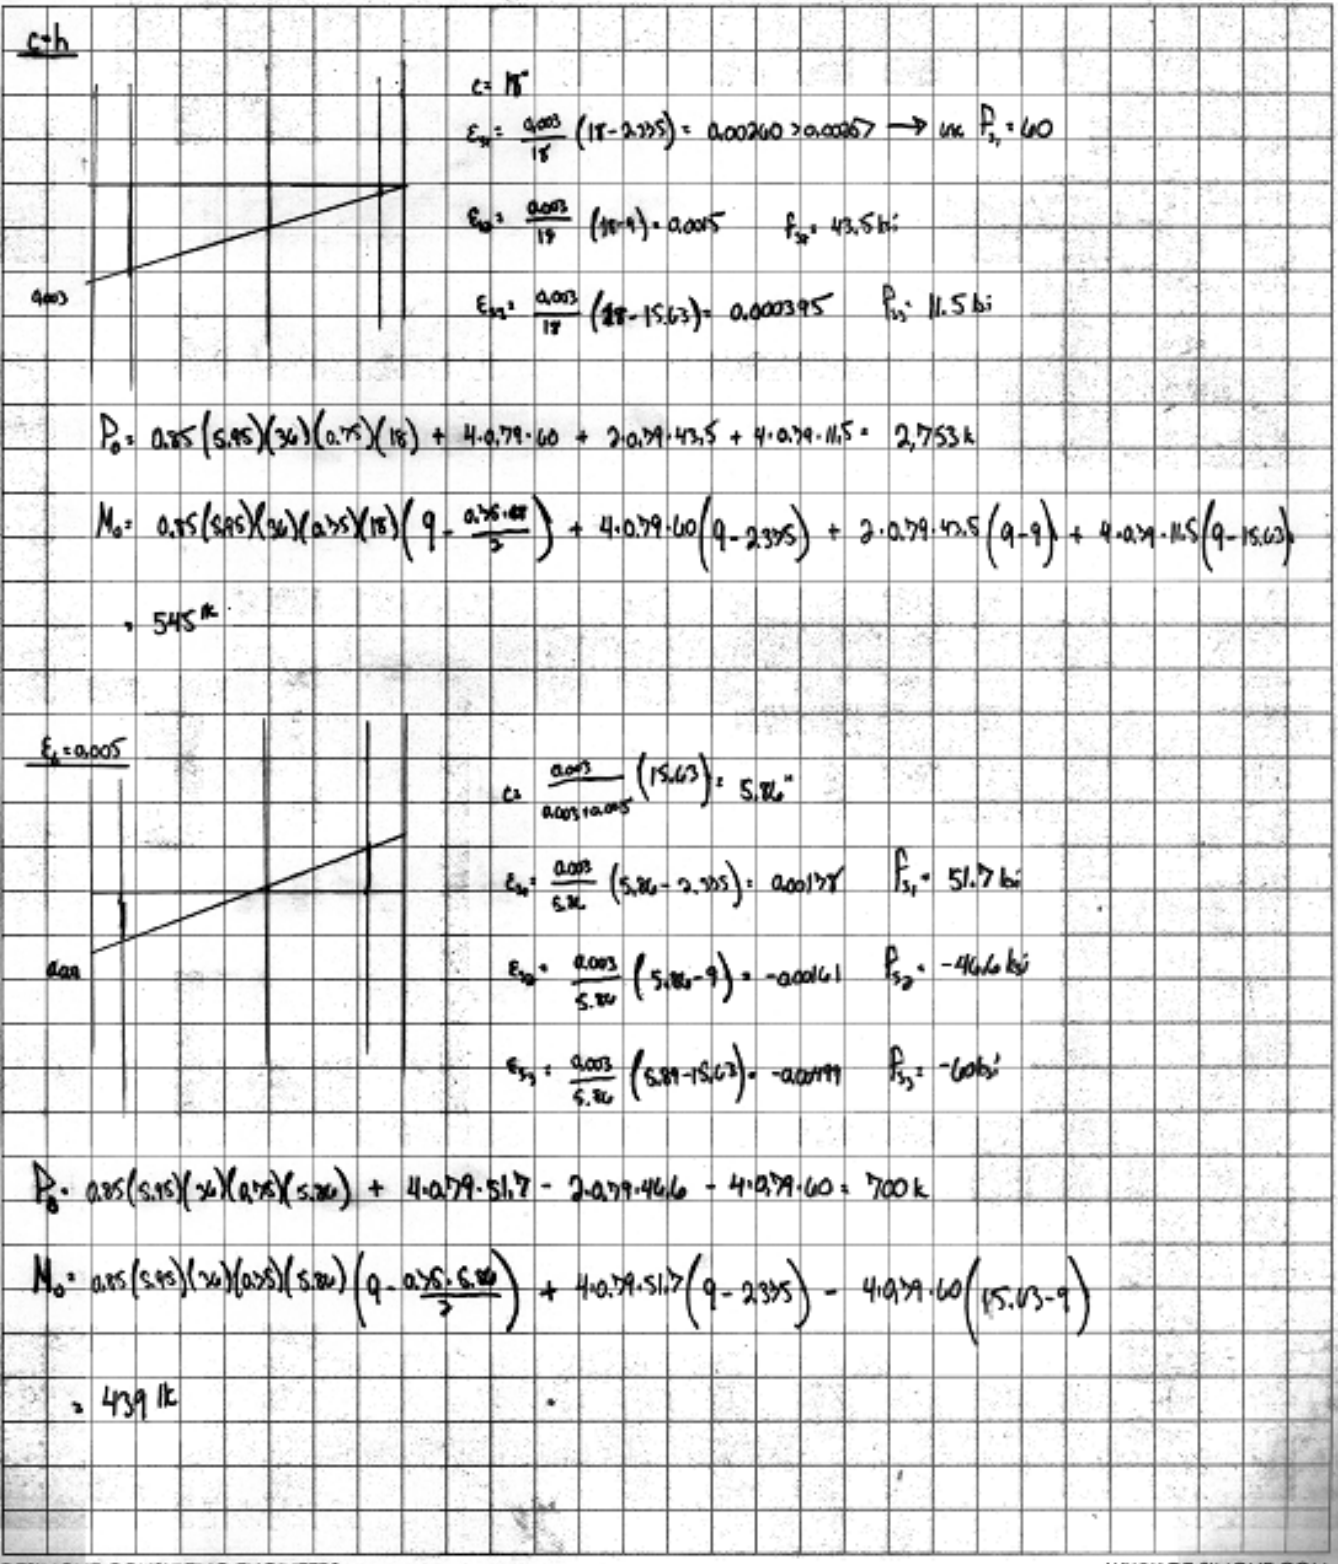 c=h
c= 18"
εs1= 0.003/18 (18-2.375)= 0.00260 >0.00207 → use fs1=60
εs2= 0.003/18 (18-9)= 0.0015 fs2= 43.5 ksi
0.003
εs3= 0.003/18 (18-15.63)= 0.000395 fs3= 11.5 ksi
P0= 0.85(5.95)(36)(0.75)(18) + 4·0.79·60 + 2·0.79·43.5 + 4·0.79·11.5 = 2,753k
M0= 0.85(5.95)(36)(0.75)(18)(9 - 0.75·18/2) + 4·0.79·60(9-2.375) + 2·0.79·43.5(9-9) + 4·0.79·11.5(9-15.63)
= 545 'k
εt=0.005
c= 0.003/0.003+0.005 (15.63)= 5.86"
εs1= 0.003/5.86 (5.86-2.375)= 0.00178 fs1= 51.7 ksi
0.003
εs2= 0.003/5.86 (5.86-9)= -0.00161 fs2= -46.6 ksi
εs3= 0.003/5.86 (5.89-15.63)= -0.00499 fs3= -60ksi
P0= 0.85(5.95)(36)(0.75)(5.86) + 4·0.79·51.7 - 2·0.79·46.6 - 4·0.79·60 = 700k
M0= 0.85(5.95)(36)(0.75)(5.86)(9 - 0.75·5.86/2) + 4·0.79·51.7(9-2.375) - 4·0.79·60(15.63-9)
= 439 'k